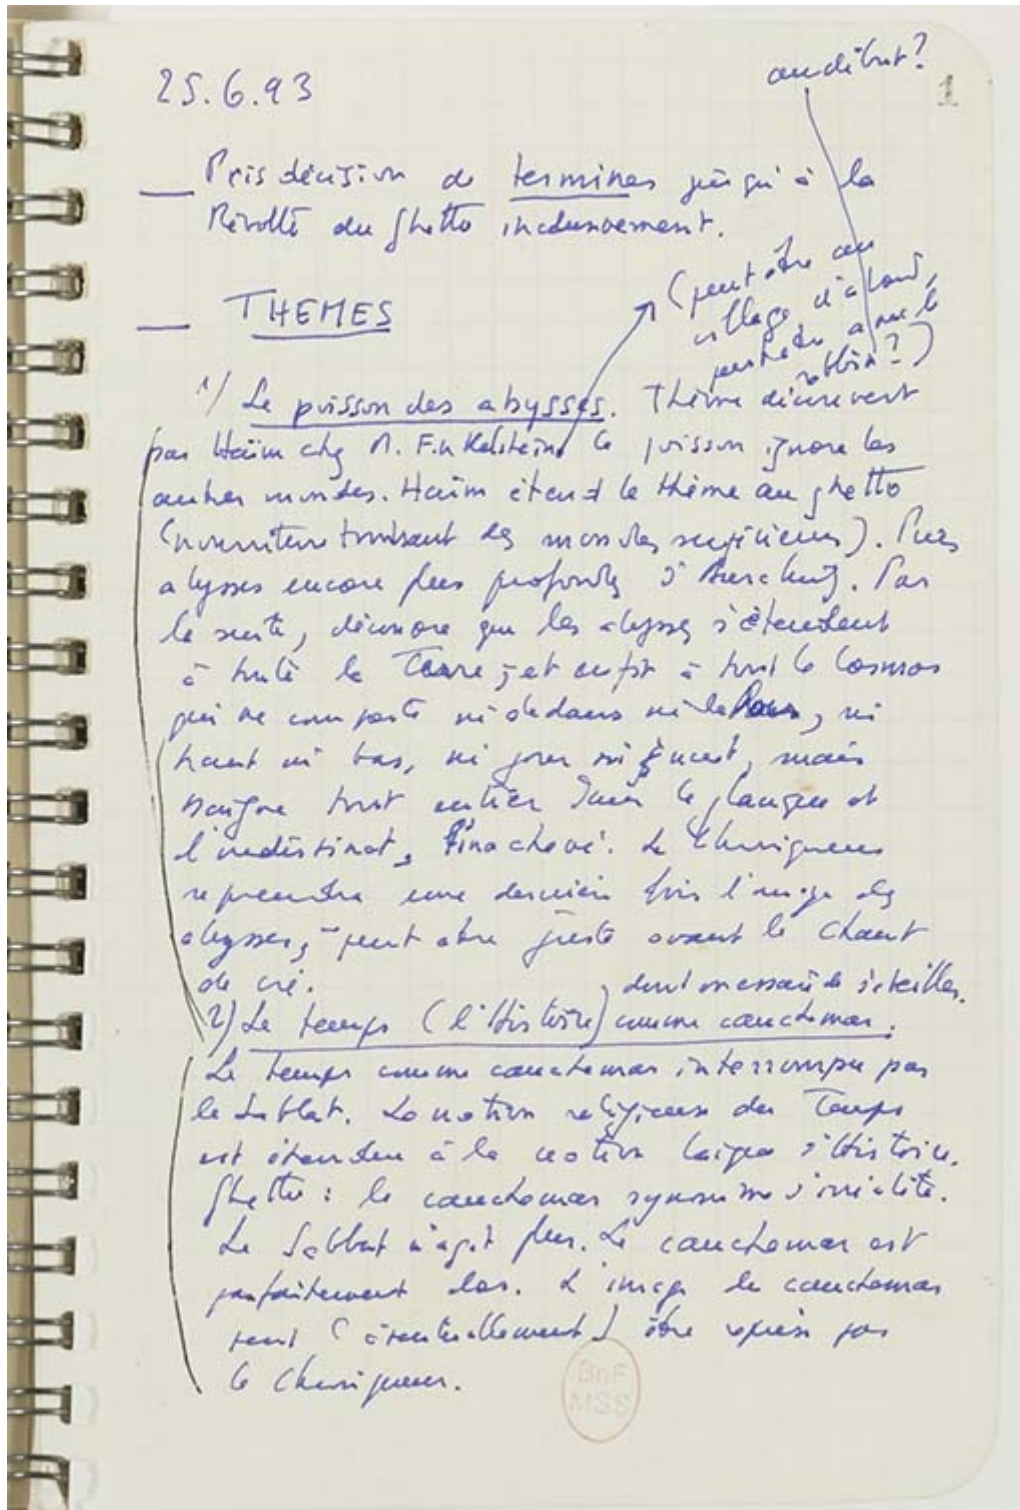 25.6.93
au début?
1
— Pris décision de terminer jusqu'à la
Révolte du Ghetto inclusivement.
— THEMES
(peut être au
village, d'abord,
peut être avec le
rabbin?)
1/ Le poisson des abysses. Thème découvert
par Haïm chez M. Finkelstein. Le poisson ignore les
autres mondes. Haïm étend le thème au ghetto
(nourriture tombant des mondes supérieurs). Puis
abysses encore plus profonds d'Auschwitz. Par
la suite, découvre que les abysses s'étendent
à toute la Terre ; et enfin à tout le Cosmos
qui ne comporte ni dedans ni dehors, ni
haut ni bas, ni jour ni nuit, mais
baigne tout entier dans le glauque et
l'indistinct, l'inachevé. Le Chroniqueur
reprendra une dernière fois l'image des
abysses, peut être juste avant le Chant
de vie.
, dont on essaie de s'éveiller.
2) Le temps (l'Histoire) comme cauchemar.
Le temps comme cauchemar interrompu par
le Sabbat. La notion religieuse du Temps
est étendue à la notion laïque d'Histoire.
Ghetto : le cauchemar synonyme d'irréalité.
Le Sabbat n'agit plus. Le cauchemar est
parfaitement clos. L'image du cauchemar
peut (éventuellement) être reprise par
le Chroniqueur.
BnF
MSS